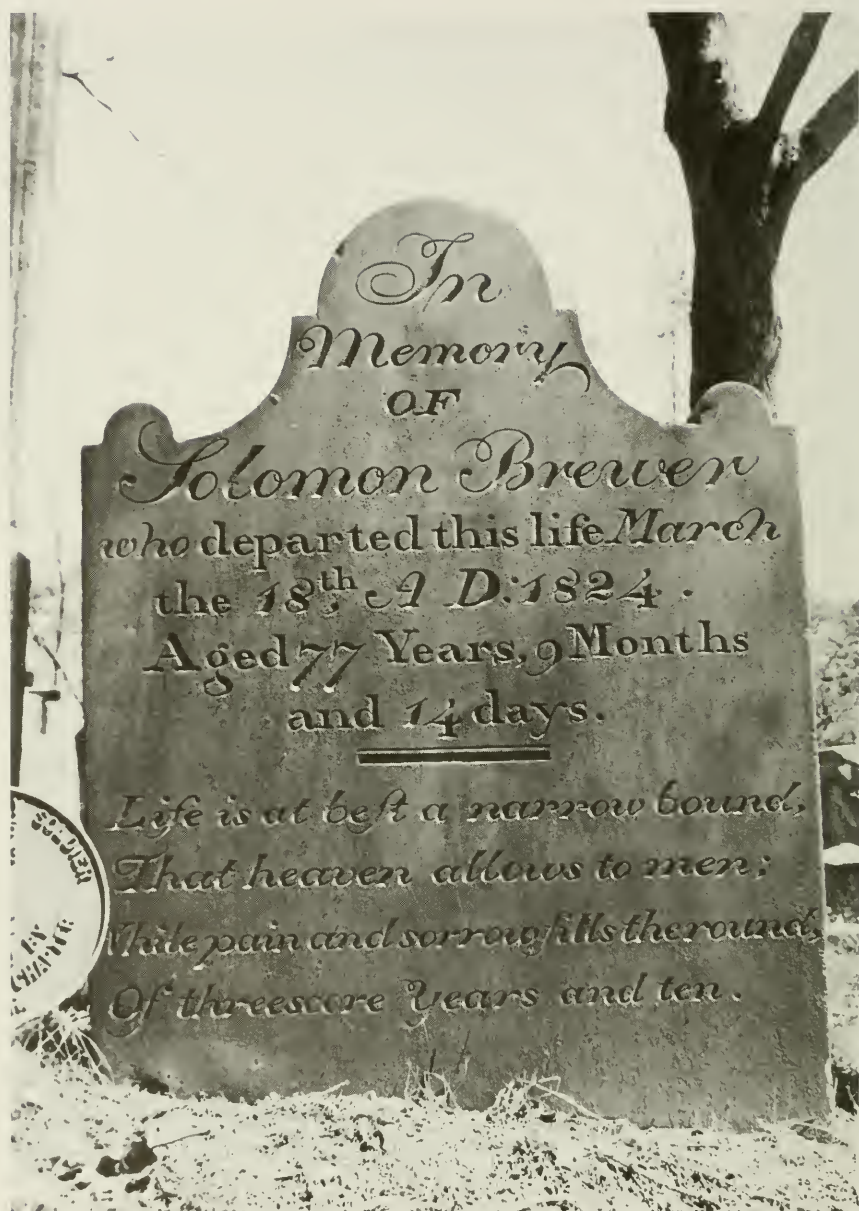 In
Memory
OF
Solomon Brewer
who departed this life March
the 18th. A D: 1824.
Aged 77 Years, 9 Months
and 14 days.
Life is at beſt a narrow bound,
That heaven allows to men;
While pain and sorrow fills the round,
Of threescore Years and ten.
SOLDIER
CHAPTER